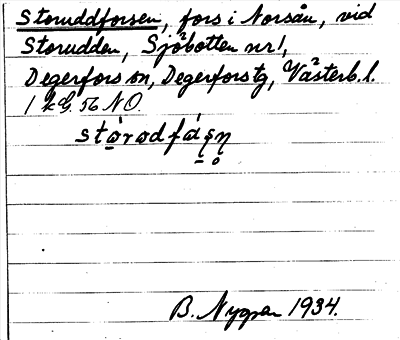 Storuddforsen, fors i Norsån, vid
Storudden, Sjöbotten nr 1,
Degerfors sn, Degerfors tg, Västerb. l.
1 kG. 56 NO.
B. Nygren 1934.